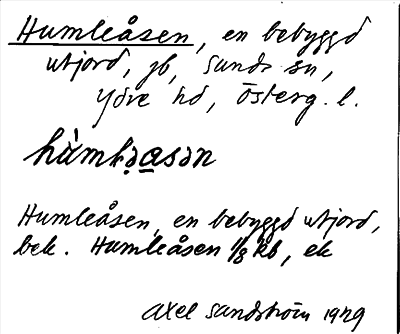 Humleåsen, en bebyggd
utjord, jb, Sunds sn,
Ydre hd, Österg. l.
hùmləasən
Humleåsen, en bebyggd utjord,
bek. Humleåsen 1/8 kb, ek
Axel Sandström 1929